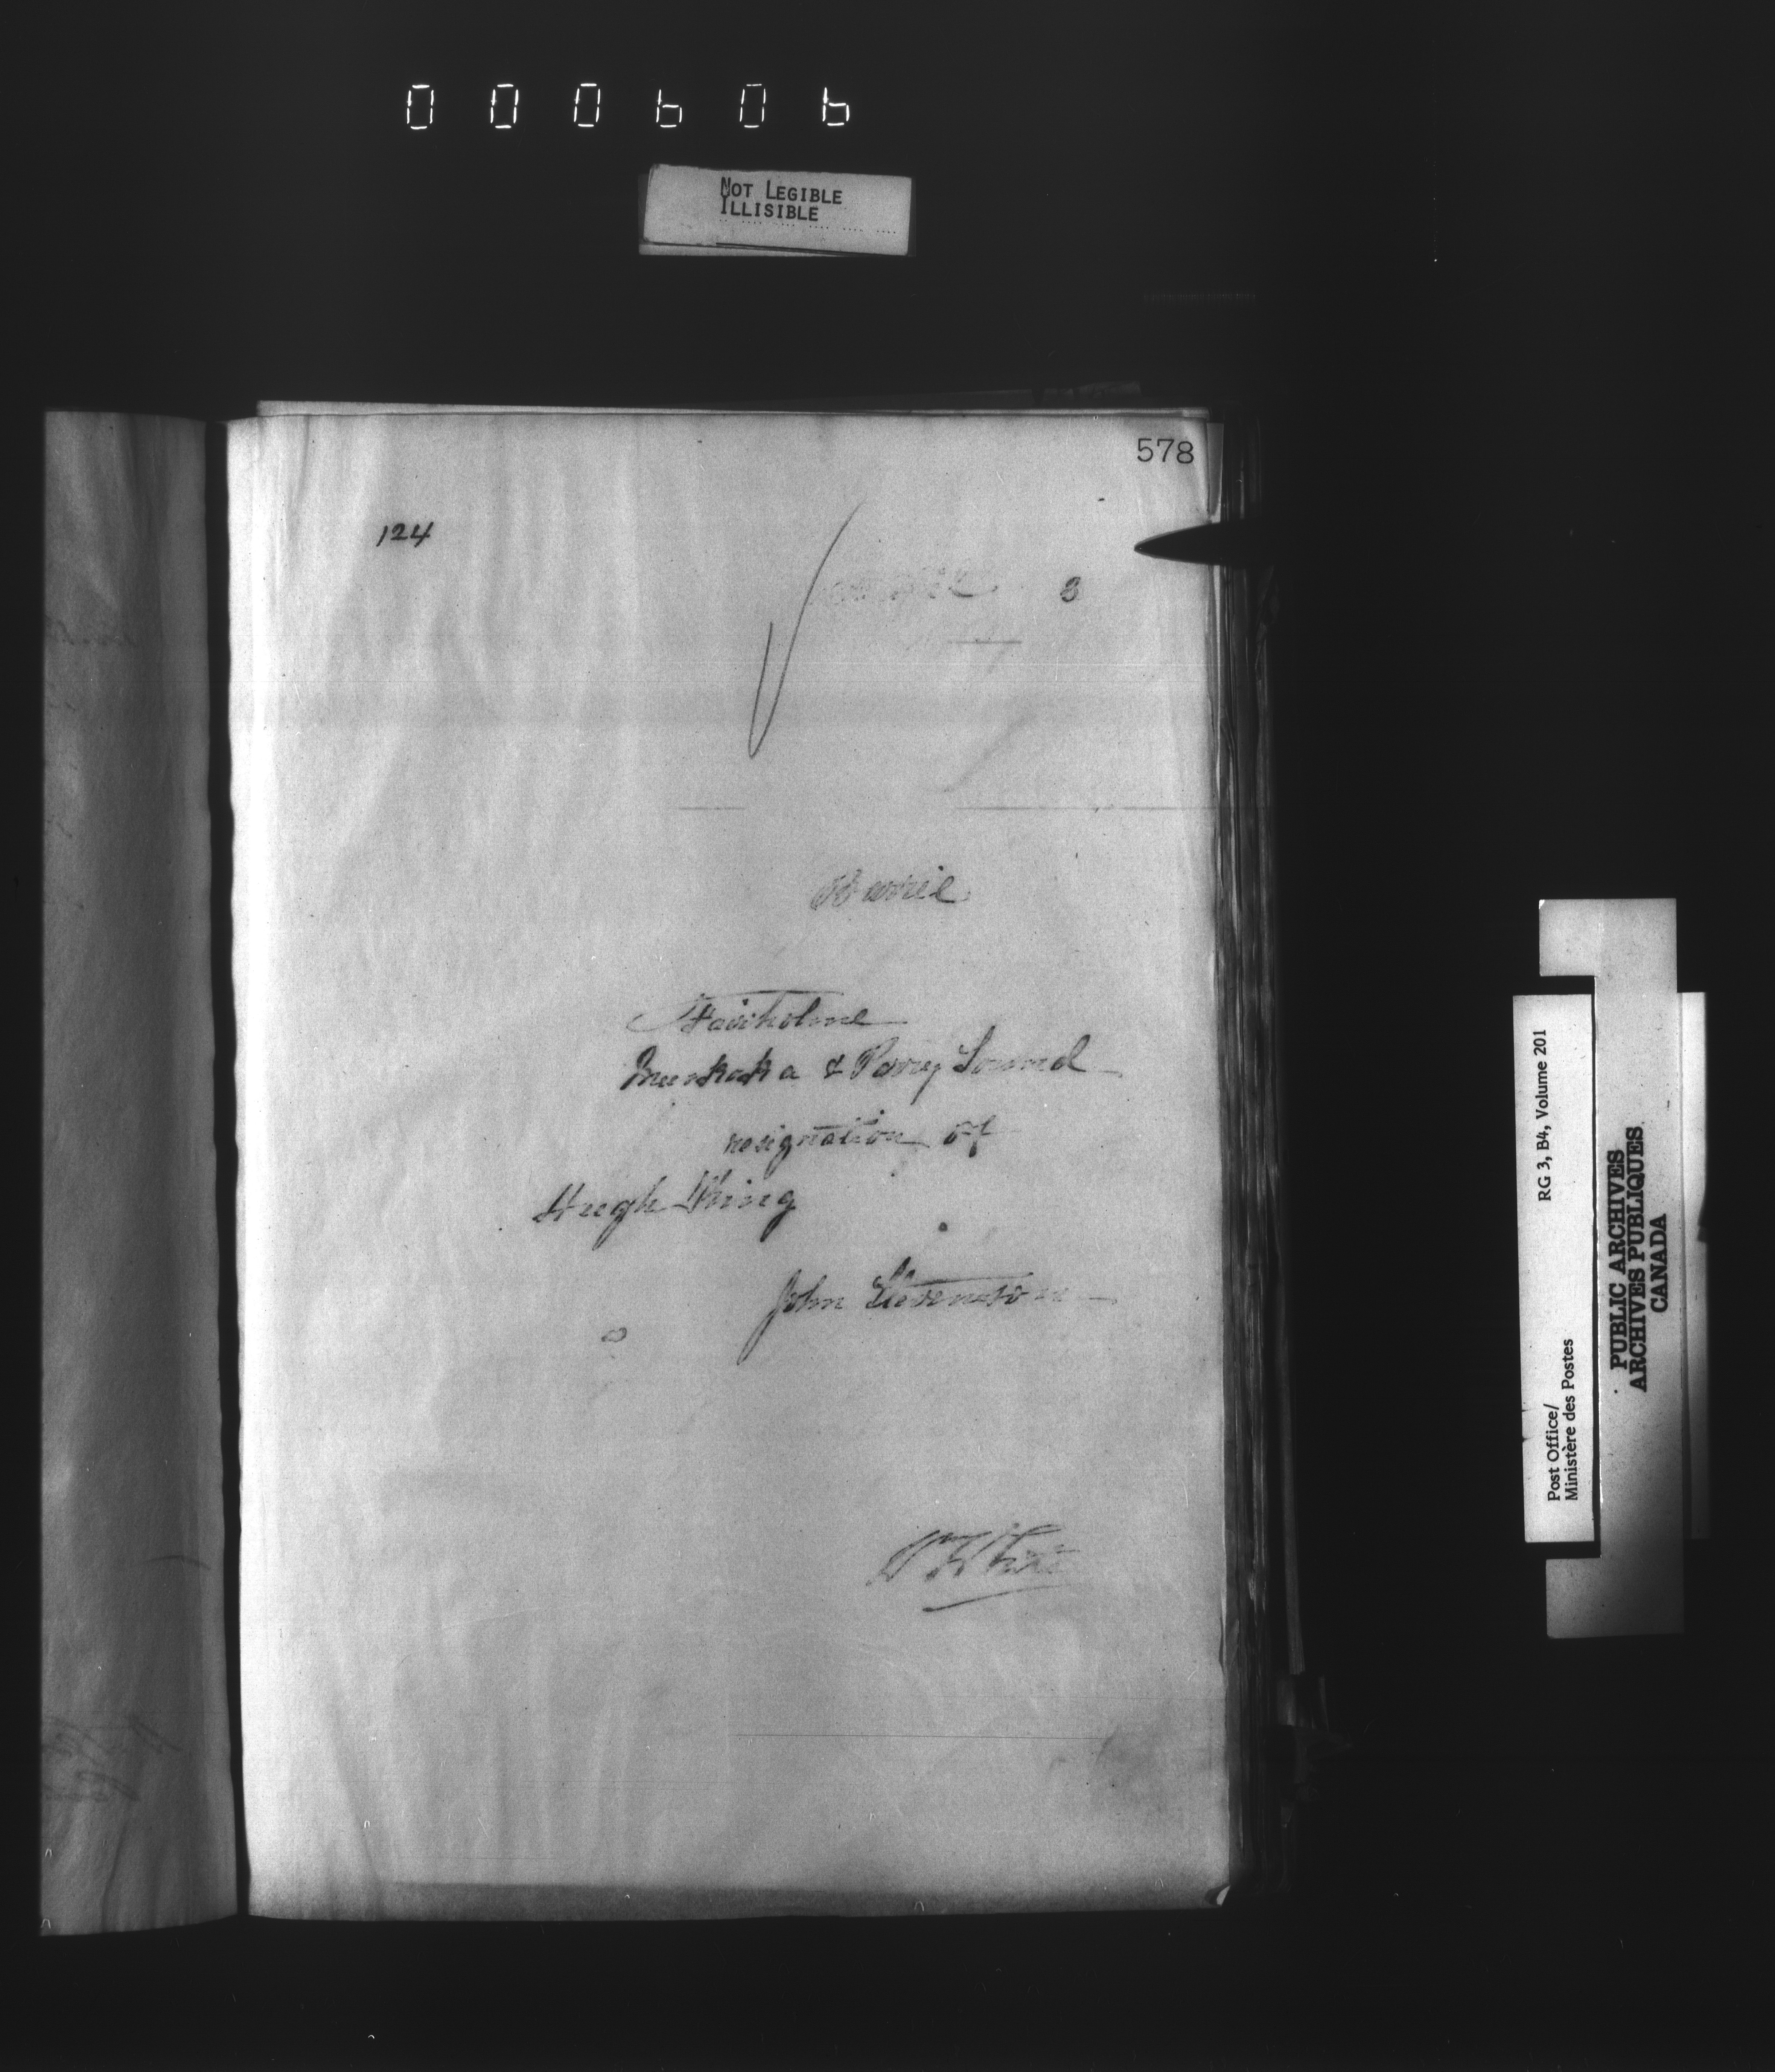 000606
NOT LEGIBLE
ILLISIBLE
578
124
8
Barrie
Fairholme
Muskoka & Parry Sound
resignation of
Hugh King
John Stevenson
W White
RG 3, B4, Volume 201
Post Office/
Ministère des Postes
PUBLIC ARCHIVES
ARCHIVES PUBLIQUES
CANADA